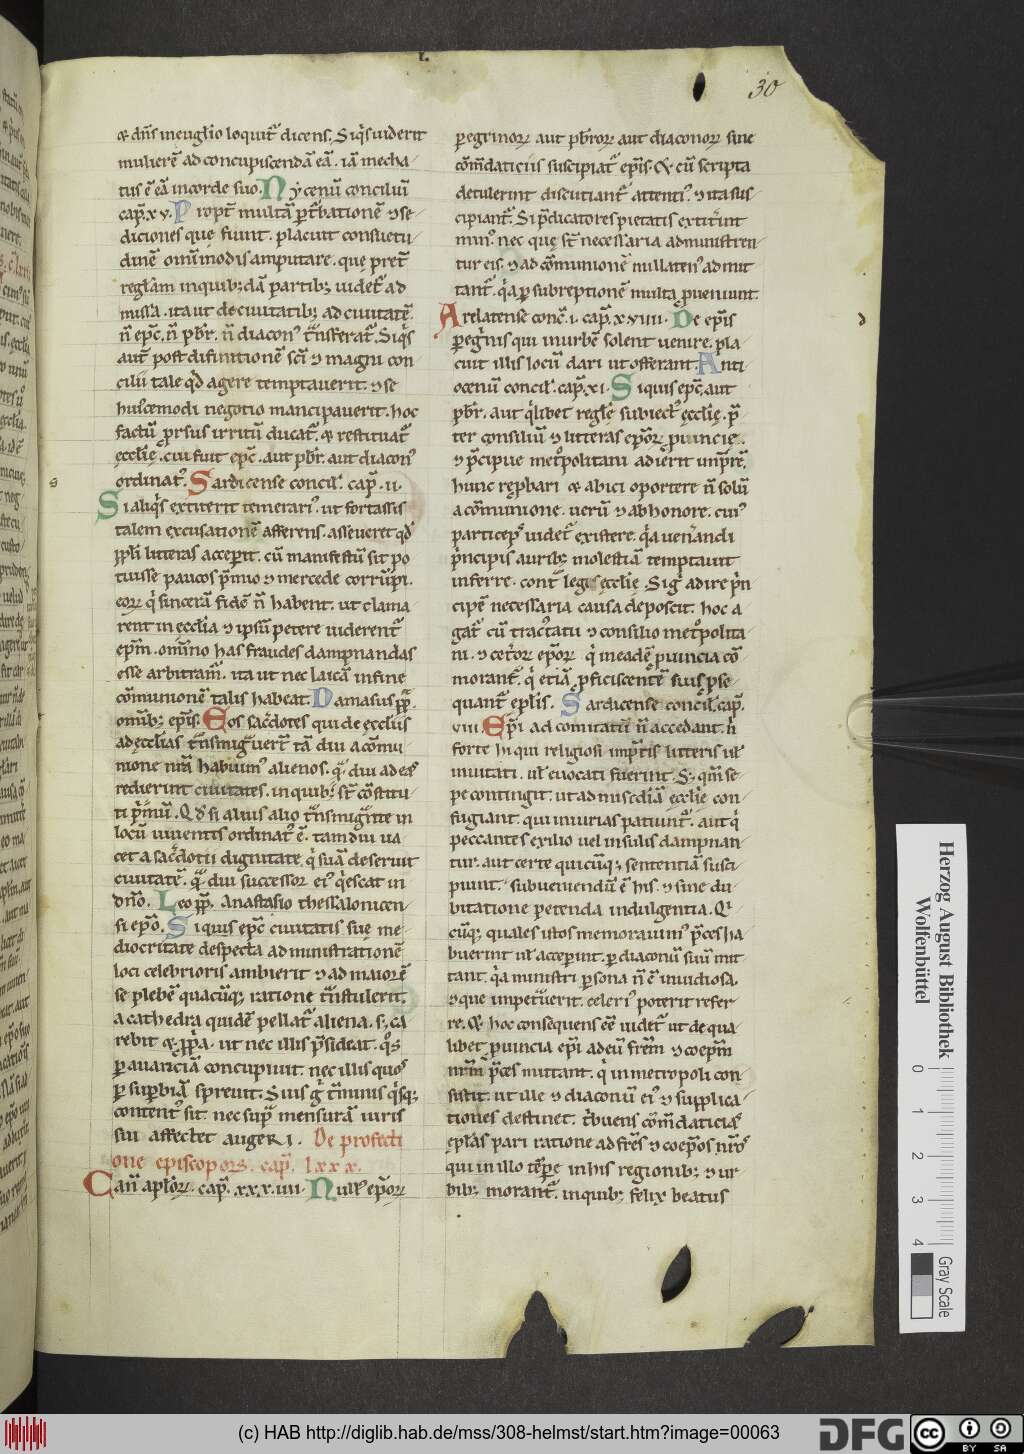 30
& dn̄s in euglio loquit̄ dicens. Siq̄s uiderit
mulierē ad concupiscendā eā. iā mecha
tus ē eā in corde suo. Nycenū conciliū
cap̄. xv. Propt̄ multā ꝑt̄bationē ⁊ se
diciones que fiunt. placuit consuetu
dinē om̄imodis amputare. que pret̄
regłam in quibꝫdā partibꝫ uidet̄ ad
missa. ita ut de ciuitatibꝫ ad ciuitatē
n̄ epc̄. n̄ pb̄r. n̄ diaconꝰ t̄nsferat̄. Siq̄s
aut̄ post difinitionē sc̄i ⁊ magni con
cilii tale qd̄ agere temptauerit. ⁊ se
huiꝰcemodi negotio mancipauerit. hoc
factū prsus irritū ducat̄. & restituat̄
ęcclię. cui fuit epc̄. aut pb̄r. aut diaconꝰ
ordinatꝰ. Sardicense concil̄. cap̄. ii.
Si aliq̄s extiterit temerariꝰ. ut fortassis
talem excusationē afferens. asseueret qd̄
ppłi litteras acceperit. cū manifestū sit po
tuisse paucos p̄mio ⁊ mercede corrūpi.
eoꝝ qi sincerā fidē n̄ habent. ut clama
rent in ecclia ⁊ ipsū petere uiderent̄
ep̄m. om̄ino has fraudes dampnandas
esse arbitram̄. ita ut nec laicā in fine
cōmunionē talis habeat. Damasus pp̄
om̄ibꝫ ep̄is. Eos sac̄dotes qui de ęccliis
ad ęcclias t̄nsmigūert̄ tā diu a cōmu
nione nr̄a habuim̄ alienos. q̄ diu ad eas
redierint ciuitates. in quibꝫ st̄ cōstitu
ti p̄mū. Qd̄ si alius alio t̄nsmigūte in
locū uiuentis ordinatꝰ ē. tam diu ua
cet a sac̄dotii dignitate. q̇ suā deseruit
ciuitatē. q̄ diu successor eiꝰ q̇escat in
dn̄o. Leo pp̄. Anastasio thessalonicen
si ep̄o. Si quis epc̄ ciuitatis suę me
diocritate despecta administrationē
loci celebrioris ambierit ⁊ ad maiorē
se plebē quacūqꝫ ratione t̄nstulerit.
a cathedra quidē pellat̄ aliena. sꝫ ca
rebit & ꝓp̄a. ut nec illis p̄sideat. q̊s
ꝑ auariciā concupiuit. nec illis quos
ꝑ supbiā spreuit. Suis g̊ t̄minis q̇sqꝫ
contentꝰ sit. nec sup̄ mensurā iuris
sui affectet augeri. De profecti
one episcopoꝝ. cap̄. lxxx.
Can̄ apłoꝝ. cap̄. xxxiiii. Null̄ ep̄oꝝ
ꝑegrinoꝝ aut pb̄roꝝ aut diaconoꝝ sine
cōm̄daticiis suscipiat̄ ep̄is. Et cū scripta
detulerint discutiant̄ attentiꝰ. ⁊ ita sus
cipiant̄. Si p̄dicatores pietatis extit̄int
minꝰ nec que st̄ necessaria administren
tur eis. ⁊ ad cōmunionē nullatenꝰ admit
tant̄. q̇a ꝑ subreptionē multa ꝓueniunt.
Arelatense conc̄. i. cap̄. xxiiii. De ep̄is
ꝑegrinis qui in urbē solent uenire. pla
cuit illis locū dari ut offerant. Anti
ocenū concil̄. cap̄. xi. Si quis epc̄ aut
pb̄r. aut q̇libet regłę subiectꝰ ęcclię. p̄
ter consiliū ⁊ litteras ep̄oꝝ ꝓuincię.
⁊ p̄cipue met̊politani adierit impr̄ē.
hunc reꝓbari & abici oportere n̄ solū
a cōmunione. uerū ⁊ ab honore. cuiꝰ
particeps uidet̄ existere. q̇a uen̄andi
p̄ncipis auribꝫ molestiā temptauit
inferre. cont̄ leges ęcclię. Sig̊ adire p̄n
cipē necessaria causa deposcit. hoc a
gat̄ cū tractatu ⁊ consilio met̊polita
ni. ⁊ cet̄oꝝ ep̄oꝝ q̇ in eadē ꝓuincia cō
morant̄. q̇ etiā ꝓficiscentē suis ꝓse
quant̄ epłis. Sardicense concil̄. cap̄.
viii. Ep̄i ad comitatū n̄ accedant. n̄
forte hi qui religiosi impr̄tis litteris uł
inuitati. uł euocati fuerint. Sꝫ qm̄ se
pe contingit. ut ad mis̄cdiā ęcclię con
fugiant. qui iniurias patiunt̄. aut q̇
peccantes exilio uel insulis dampnan
tur. aut certe quicūqꝫ sententiā susci
piunt. subueniendū ē his. ⁊ sine du
bitatione petenda indulgentia. Qi
cūqꝫ quales istos memorauim̄ p̄ces ha
buerint uł acceperint. ꝑ diaconū suū mit
tant. q̇a ministri ꝑsona n̄ ē inuidiosa.
⁊ que impet̄uerit. celeriꝰ poterit refer
re. Et hoc consequens eē uidet̄ ut de qua
libet ꝓuincia ep̄i ad eū fr̄em ⁊ coep̄m
nr̄m p̄ces mittant. q̇ in metropoli con
sistit. ut ille ⁊ diaconū eiꝰ ⁊ supplica
tiones destinet. t̄buens cōm̄daticias
epłas pari ratione ad fr̄es ⁊ coep̄os nr̄os
qui in illo tēpe in his regionibꝫ ⁊ ur
bibꝫ morant̄. in quibꝫ felix beatus
Herzog August Bibliothek
Wolfenbüttel
0 1 2 3 4
Gray Scale
(c) HAB http://diglib.hab.de/mss/308-helmst/start.htm?image=00063
DFG
cc BY SA